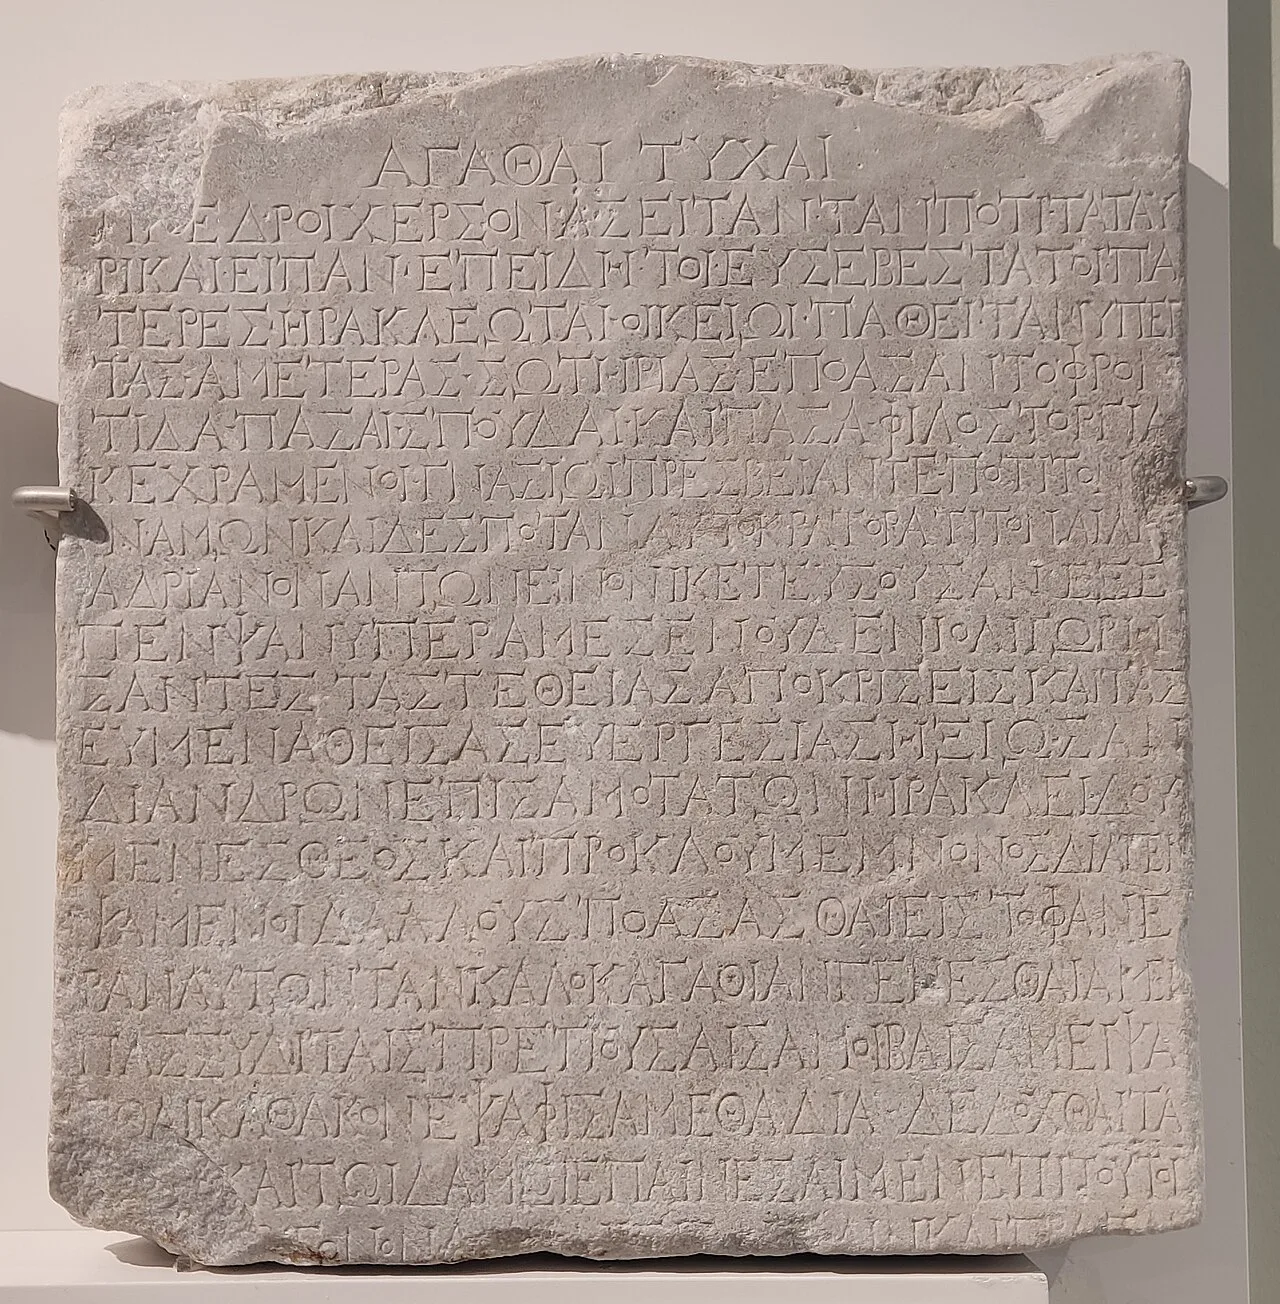 ΑΓΑΘΑΙ ΤΥΧΑΙ
ΕΔΡΟΙΧΕΡΣΟΝΑΣΕΙΤΑΝ·ΤΑΝΠΟΤΙ·ΤΑΙΤΑΥ
ΡΙΚΑΙ·ΕΙΠΑΝ·ΕΠΕΙΔΗ·ΤΟΙΕΥΣΕΒΕΣΤΑΤΟΙ·ΠΑ
ΤΕΡΕΣ·ΗΡΑΚΛΕΩΤΑΙ·ΟΙΚΕΙΩΙ·ΠΑΘΕΙ·ΤΑΙΥΠΕΡ
ΤΑΣ·ΑΜΕΤΕΡΑΣ·ΣΩΤΗΡΙΑΣΕΠΟΑΣΑΝΤΟΦΡΟΝ
ΤΙΔΑ·ΠΑΣΑΙΣΠΟΥΔΑΙ·ΚΑΙΠΑΣΑ·ΦΙΛΟΣΤΟΡΓΙΑ
ΚΕΧΡΑΜΕΝΟΙ·ΓΝΑΣΙΩΙΠΡΕΣΒΕΙΑΝΤΕ·ΠΟΤΙΤΟ
ΟΝΑΜΩΝΚΑΙΔΕΣΠΟΤΑΝΑΥΤΟΚΡΑΤΟΡΑΤΙΤΟΝΑΙΛΙ
ΑΔΡΙΑΝΟΝΑΝΤΩΝΕΙΝΟΝΙΚΕΤΕΥΣΟΥΣΑΝΕΞΕ
ΠΕΝΨΑΝΥΠΕΡΑΜΕΣΕΝΟΥΔΕΝΙΟΛΙΓΩΡΗ
ΣΑΝΤΕΣ·ΤΑΣΤΕΘΕΙΑΣΑΠΟΚΡΙΣΕΙΣΚΑΙΤΑΣ
ΕΥΜΕΝΑΘΕΙΣΑΣΕΥΕΡΓΕΣΙΑΣΗΞΙΩΣΑΝ
ΔΙΑΝΔΡΩΝΕΠΙΣΑΜΟΤΑΤΩΝΗΡΑΚΛΕΙΔΟΥ
ΜΕΝΕΣΘΕΟΣΚΑΙΠΡΟΚΛΟΥΜΕΜΝΟΝΟΣΔΙΑΠΕΝ
ΨΑΜΕΝΟΙΔΑΛΟΥΣΠΟΑΣΑΣΘΑΙΕΙΣΤΟΦΑΝΕ
ΡΑΝΑΥΤΩΝΤΑΝΚΑΛΟΚΑΓΑΘΙΑΝΓΕΝΕΣΘΑΙΑΜΕΣ
ΠΑΣΣΥΔΙΤΑΙΣΠΡΕΠΟΥΣΑΙΣΑΜΟΙΒΑΙΣΑΜΕΙΨΑ
ΣΘΑΙΚΑΘΑΚΟΝΕΨΑΦΙΣΑΜΕΘΑΔΙΑ·ΔΕΔΟΧΘΑΙΤΑ
ΚΑΙΤΩΙΔΑΜΩΙΕΠΑΙΝΕΣΑΙΜΕΝΕΠΙΤΟΥΤΟΙ